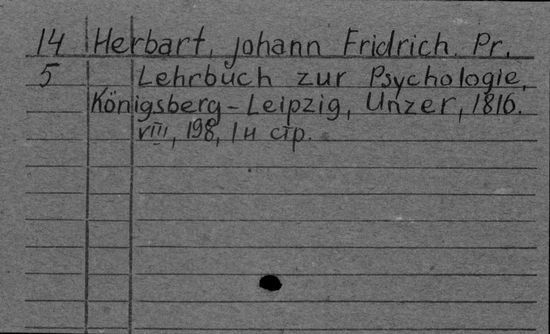 14 Herbart, Johann Fridrich. Pr.
5 Lehrbuch zur Psychologie,
Königsberg-Leipzig, Unzer, 1816.
VIII, 198, 1н стр.